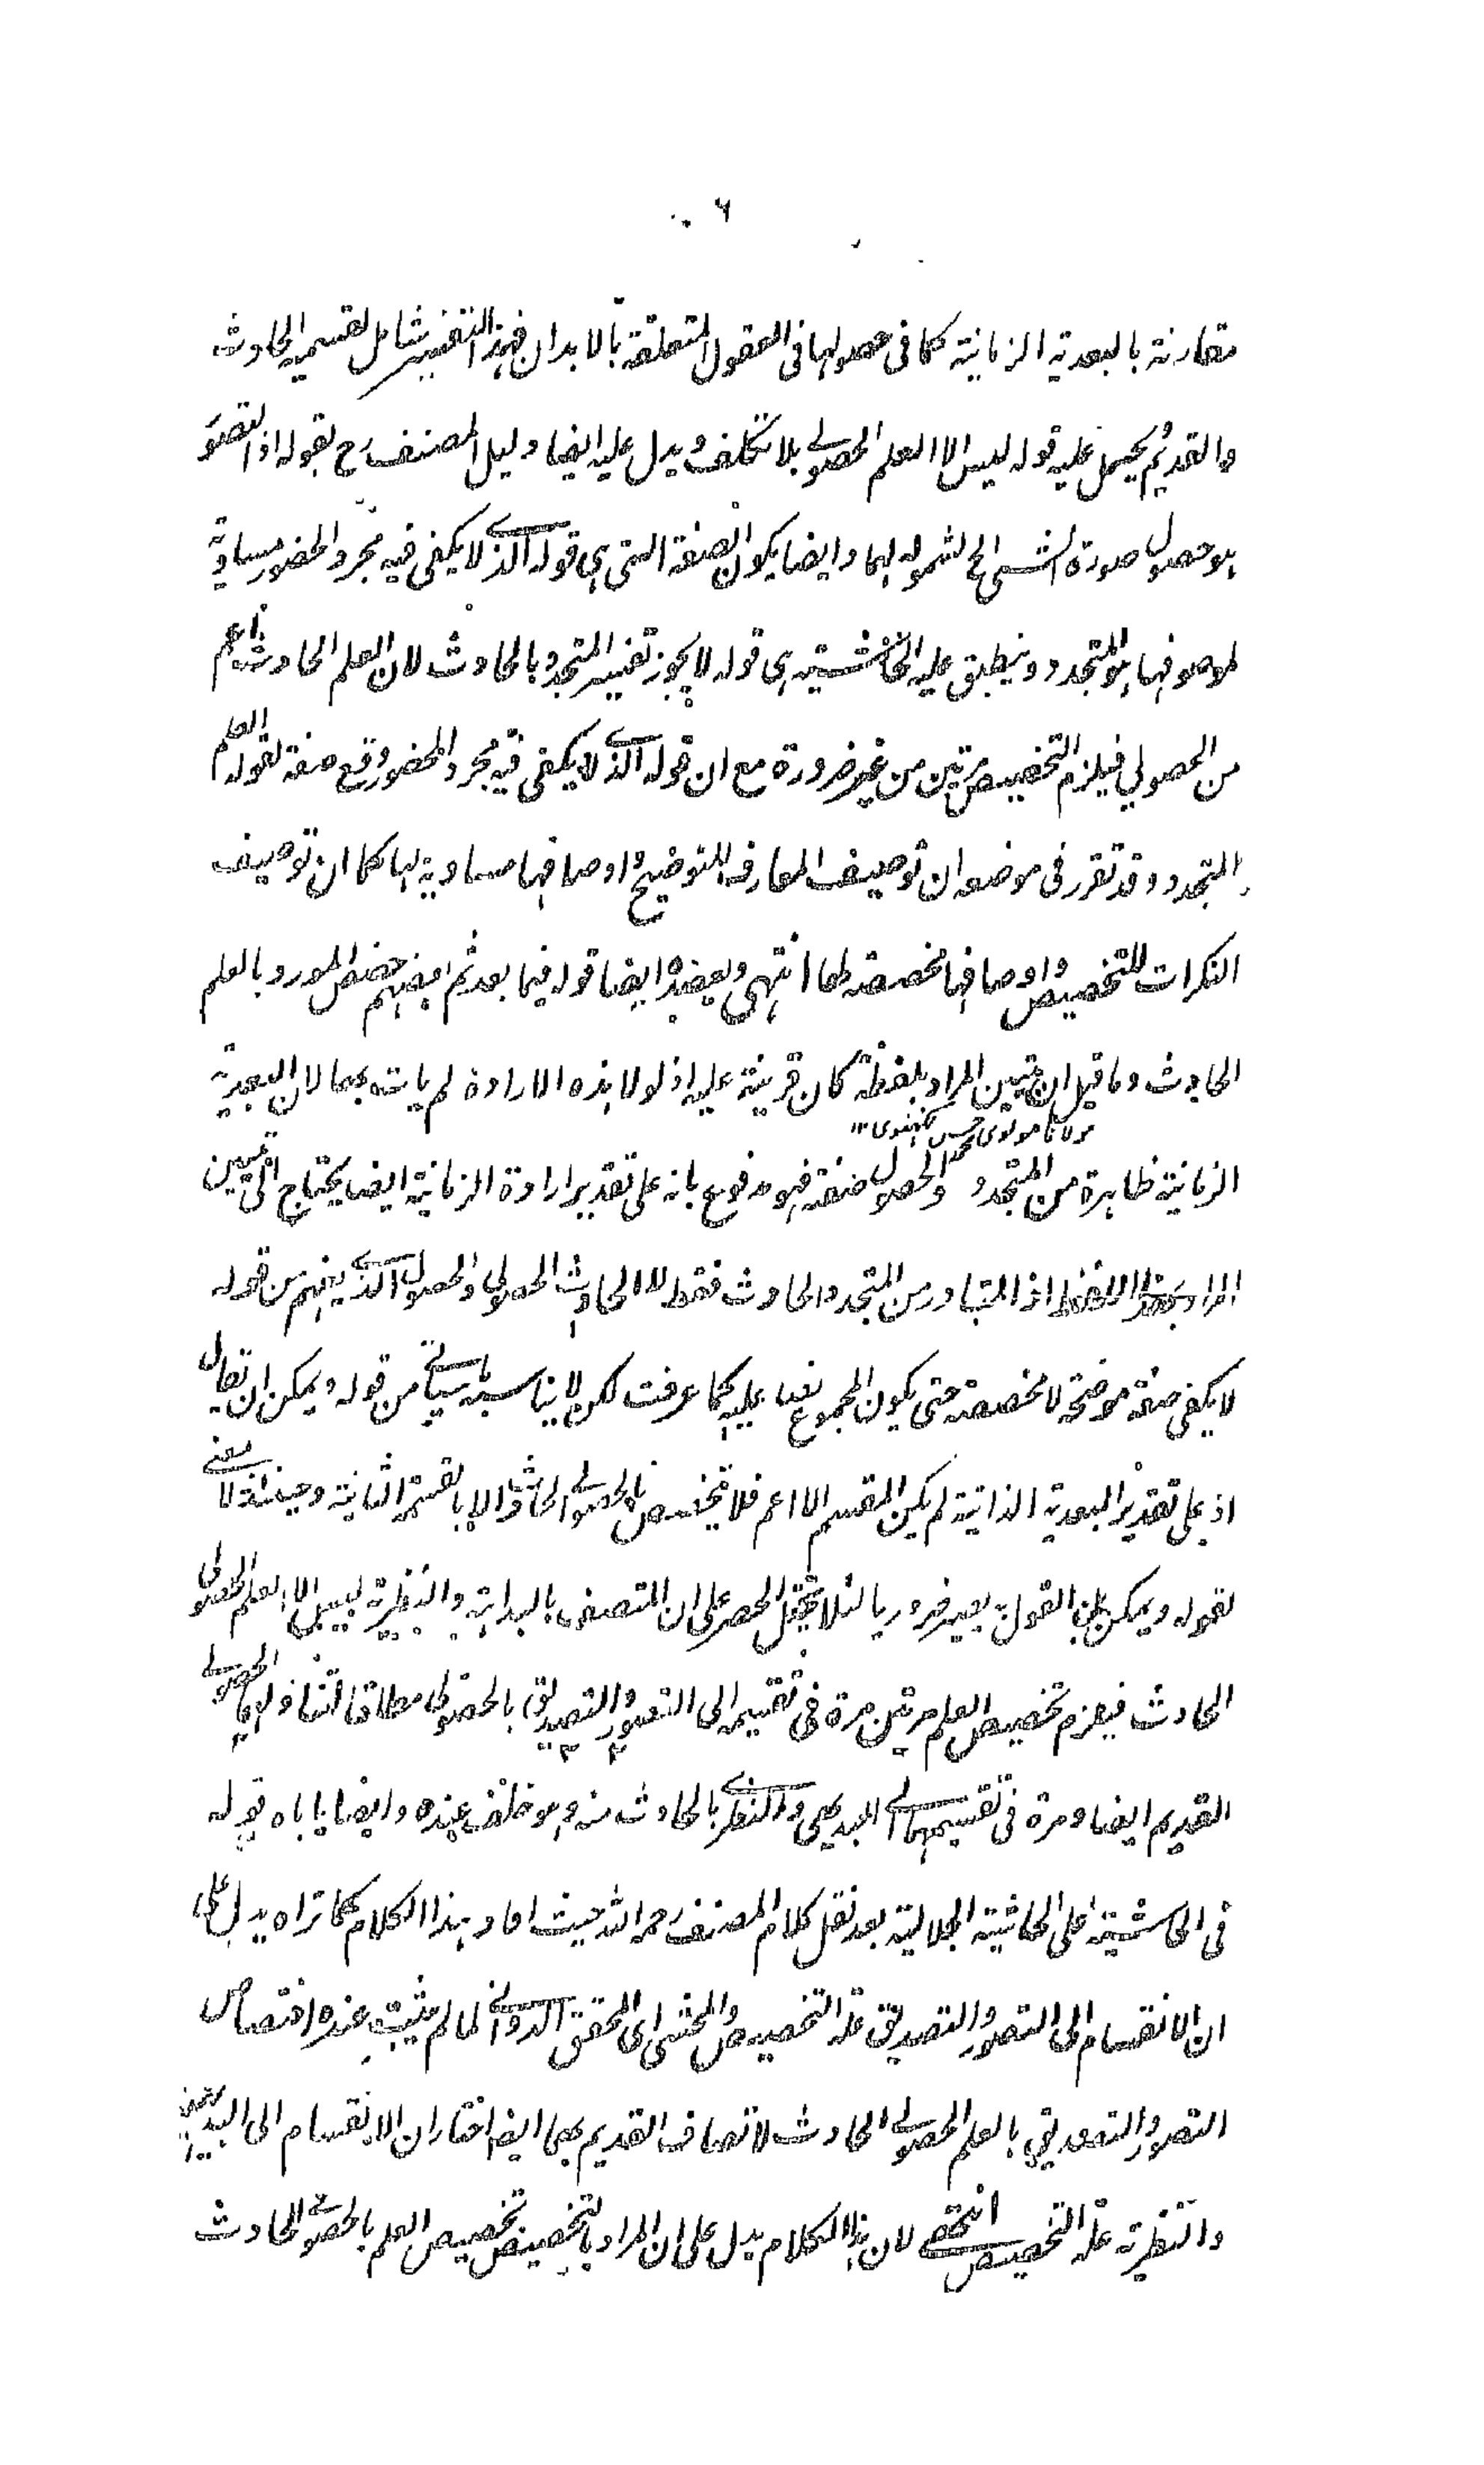 ٦
مقارنة بالبعدية الزمانية كما فى حصولها فى العقول المتعلقة بالابدان فهذا التفسير شامل لقسميه الحادث
والقديم ثم يحمل عليه قوله ليس الا العلم الحصولي بلا تكلف ويدل عليه ايضا دليل المصنف رح بقوله اذ التصور
هو حصول صورة الشىء الخ لشموله لهما وايضا يكون الصفة التى هى قوله الذى لا يكفى فيه مجرد الحضور مساوية
لموصوفها هو المتجدد وينطبق عليه الحاشية هى قوله لا يجوز تفسير المتجدد بالحادث لان العلم الحادث اعم
من الحصولي فيلزم التخصيص مرتين من غير ضرورة مع ان قوله الذى لا يكفى فيه مجرد الحضور وقع صفة لقوله العلم
المتجدد وقد تقرر فى موضعه ان توصيف المعارف للتوضيح واوصافها مساوية لها كما ان توصيف
النكرات للتخصيص واوصافها مخصصة لها انتهى ويعضده ايضا قوله فيما بعد ثم بعضهم خصص المورد بالعلم
الحادث وما قيل ان تبيين المراد بلفظة كان قرينة عليه اذ لولا هذه الارادة لم يات بهما لان البعدية
مولانا مولوى محمد حسن لكهنوى ١٢
الزمانية ظاهرة من المتجدد والحصول صفته فهو مدفوع بانه على تقدير ارادة الزمانية ايضا يحتاج الى تبيين
المراد بهذا اللفظ اذ المتبادر من المتجدد الحادث فقط لا الحادث الحصولي والحصول الذى يفهم من قوله
لا يكفى صفة موضحة لا مخصصة حتى يكون المجموع نصا عليه كما عرفت لكن لا يناسبه ما سياتى من قوله ويمكن ان يقال
اذ على تقدير البعدية الذاتية لم يكن المقسم الا اعم فلا تخصيص بالحصولي الحادث الا بالقسمة الثانية وحينئذ لا معنى
لقوله ويمكن بل القول به يصير ضروريا لئلا يختل الحصر على ان المتصف بالبداهة والنظرية ليس الا العلم الحصولى
الحادث فيلزم تخصيص العلم مرتين مرة فى تقسيمه الى التصور والتصديق بالحصولى مطلقا لتناولهما الحصولي
القديم ايضا ومرة فى تقسيمهما الى البديهى والنظرى بالحادث منه وهو خلف عنده وايضا ياباه قوله
فى الحاشية على الحاشية الجلالية بعد نقل كلام المصنف رحمه الله حيث افاد هذا الكلام كما تراه يدل على
ان الانقسام الى التصور والتصديق علة التخصيص والمحشى اى المحقق الدوانى لما لم يثبت عنده اختصاص
التصور والتصديق بالعلم الحصولي الحادث لاتصاف القديم بهما ايضا اختار ان الانقسام الى البديهى
والنظرية علة التخصيص انتهى لان هذا الكلام يدل على ان المراد بالتخصيص تخصيص العلم بالحصولي الحادث